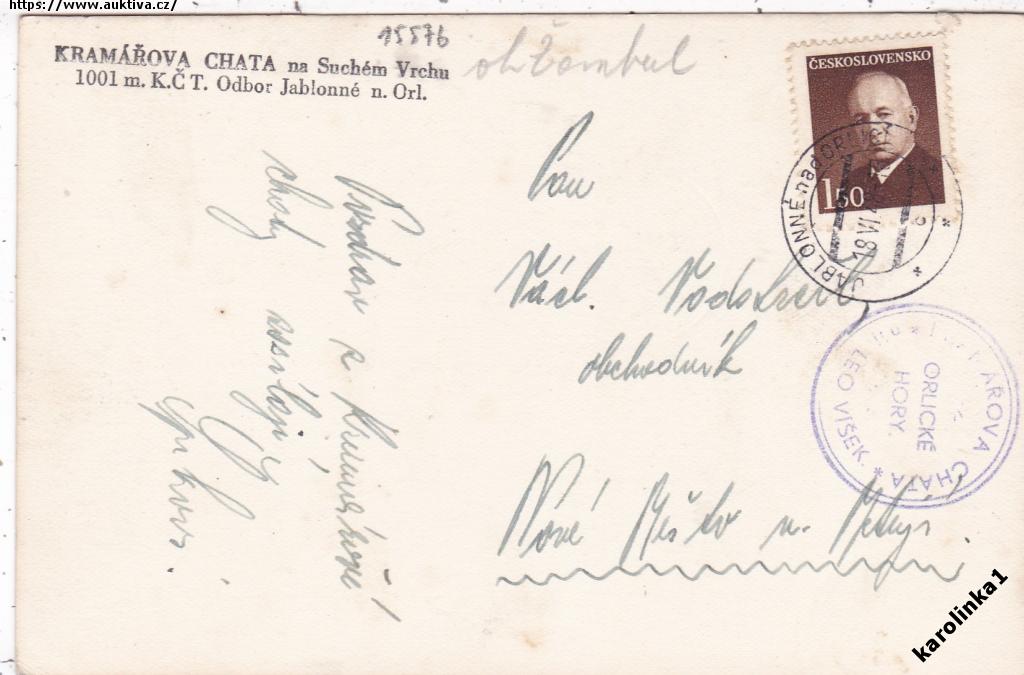 https://www.auktiva.cz/
15576
KRAMÁŘOVA CHATA na Suchém Vrchu
1001 m. K.Č T. Odbor Jablonné n. Orl.
ČESKOSLOVENSKO
1 50
JABLONNÉ nad ORLICÍ
18 VI
Pan
Václ.
obchodník
Nové Město n. Metují
Pozdrav z Kramářovi
chaty zasílají
ÁŘOVA CHATA * LEO VÍŠEK. *
ORLICKÉ
HORY.
karolinka1